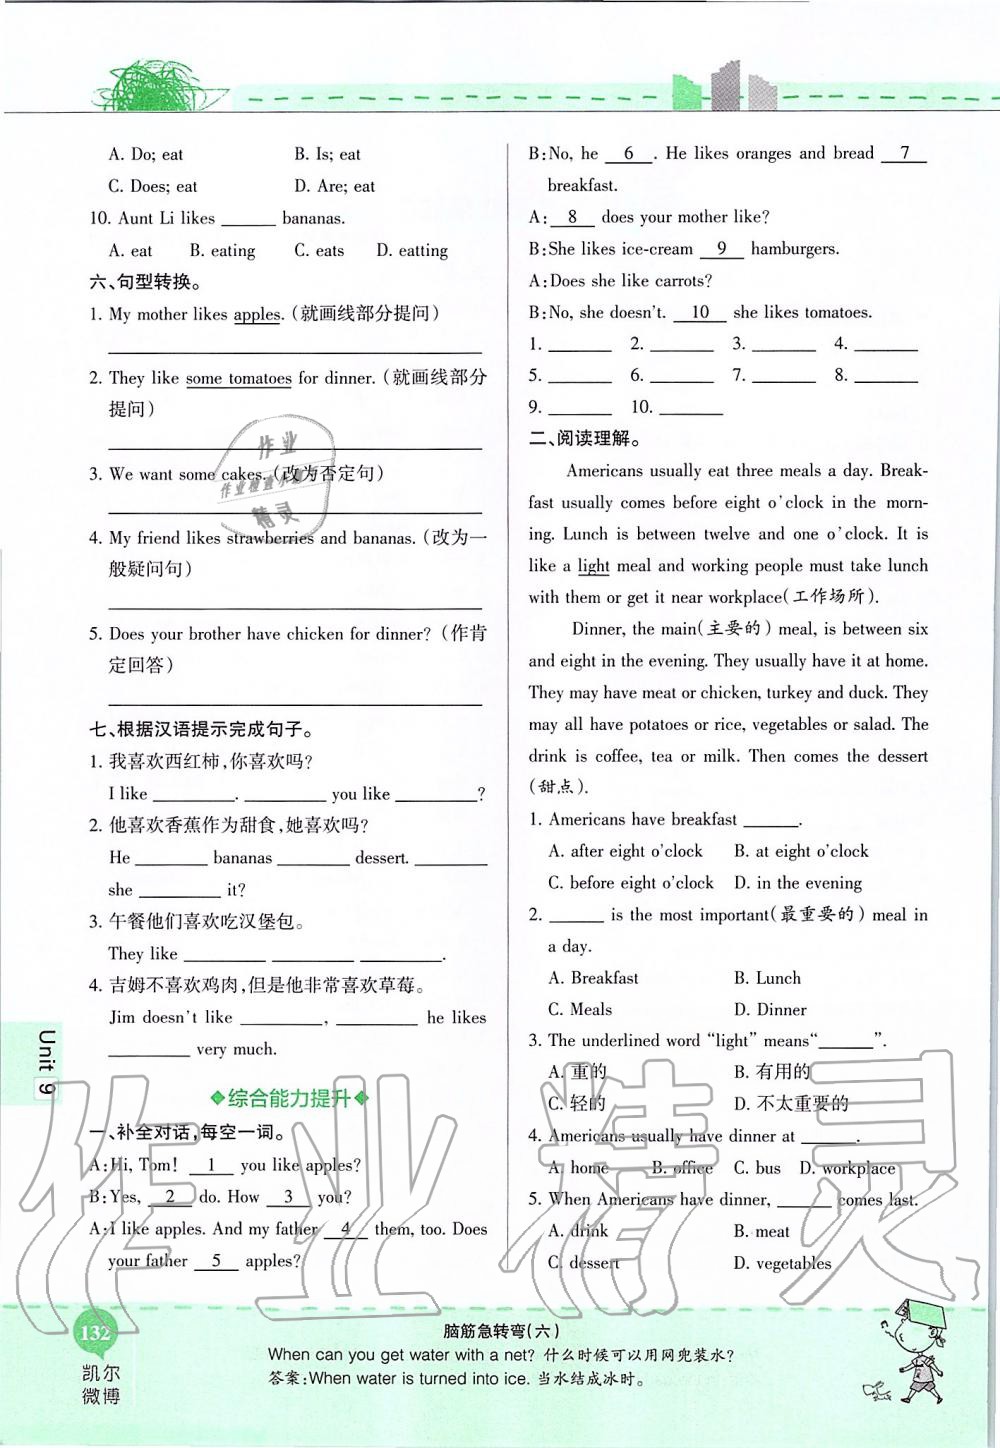 A. Do; eat B. Is; eat
C. Does; eat D. Are; eat
10. Aunt Li likes ______ bananas.
A. eat B. eating C. eats D. eatting
六、句型转换。
1. My mother likes apples. (就画线部分提问)
2. They like some tomatoes for dinner. (就画线部分
提问)
3. We want some cakes. (改为否定句)
4. My friend likes strawberries and bananas. (改为一
般疑问句)
5. Does your brother have chicken for dinner? (作肯
定回答)
七、根据汉语提示完成句子。
1. 我喜欢西红柿,你喜欢吗?
I like ________. ________ you like ________?
2. 他喜欢香蕉作为甜食,她喜欢吗?
He ________ bananas ________ dessert. ________
she ________ it?
3. 午餐他们喜欢吃汉堡包。
They like ________ ________ ________.
4. 吉姆不喜欢鸡肉,但是他非常喜欢草莓。
Jim doesn't like ________, ________ he likes
________ very much.
综合能力提升
一、补全对话,每空一词。
A:Hi, Tom! 1 you like apples?
B:Yes, 2 do. How 3 you?
A:I like apples. And my father 4 them, too. Does
your father 5 apples?
B:No, he 6 . He likes oranges and bread 7
breakfast.
A: 8 does your mother like?
B:She likes ice-cream 9 hamburgers.
A:Does she like carrots?
B:No, she doesn't. 10 she likes tomatoes.
1. ______ 2. ______ 3. ______ 4. ______
5. ______ 6. ______ 7. ______ 8. ______
9. ______ 10. ______
二、阅读理解。
Americans usually eat three meals a day. Break-
fast usually comes before eight o'clock in the morn-
ing. Lunch is between twelve and one o'clock. It is
like a light meal and working people must take lunch
with them or get it near workplace(工作场所).
Dinner, the main(主要的) meal, is between six
and eight in the evening. They usually have it at home.
They may have meat or chicken, turkey and duck. They
may all have potatoes or rice, vegetables or salad. The
drink is coffee, tea or milk. Then comes the dessert
(甜点).
1. Americans have breakfast ______.
A. after eight o'clock B. at eight o'clock
C. before eight o'clock D. in the evening
2. ______ is the most important(最重要的) meal in
a day.
A. Breakfast B. Lunch
C. Meals D. Dinner
3. The underlined word "light" means"______".
A. 重的 B. 有用的
C. 轻的 D. 不太重要的
4. Americans usually have dinner at ______.
A. home B. office C. bus D. workplace
5. When Americans have dinner, ______ comes last.
A. drink B. meat
C. dessert D. vegetables
Unit 9
132
凯尔
微博
脑筋急转弯(六)
When can you get water with a net? 什么时候可以用网兜装水?
答案:When water is turned into ice. 当水结成冰时。
作业
作业检查小助手
精灵
作业精灵